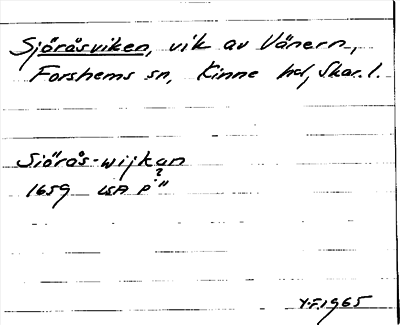 Sjöråsviken, vik av Vänern,
Forshems sn, Kinne hd, Skar. l.
Siörås-wijkan
?
1659 LSA P"
Y.F. 1965